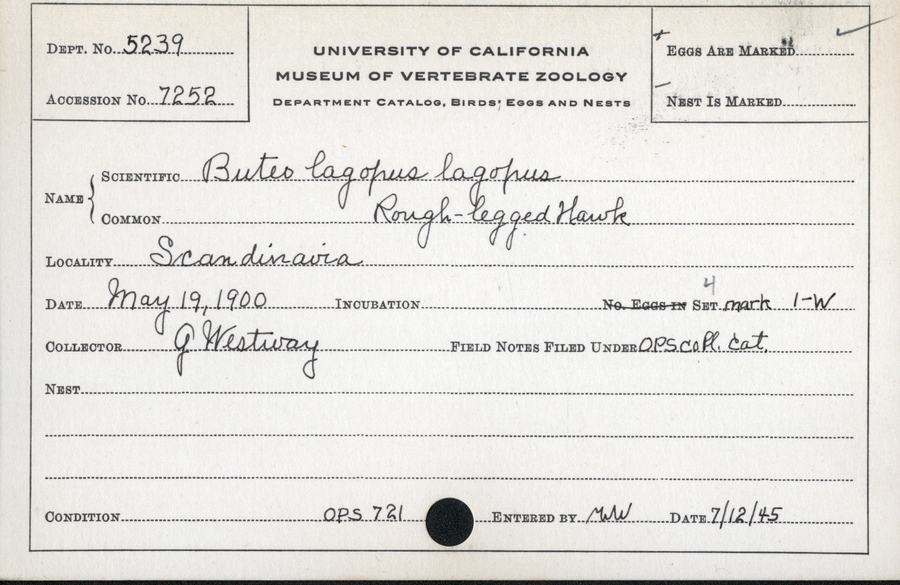 DEPT. No. 5239
ACCESSION No. 7252
UNIVERSITY OF CALIFORNIA
MUSEUM OF VERTEBRATE ZOOLOGY
DEPARTMENT CATALOG, BIRDS' EGGS AND NESTS
+ EGGS ARE MARKED ✓
– NEST IS MARKED
NAME { SCIENTIFIC Buteo lagopus lagopus
COMMON Rough-legged Hawk
LOCALITY Scandinavia
4
DATE May 19, 1900 INCUBATION No. EGGS IN SET mark 1-W
COLLECTOR G Westway FIELD NOTES FILED UNDER OPS coll. cat.
NEST
CONDITION OPS 721 ENTERED BY MW DATE 7/12/45